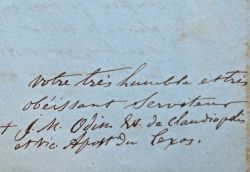 votre très humble et très
obéissant Serviteur
+ J. M. Odin Ev. de Claudiopolis
et vic Apost du Texas.